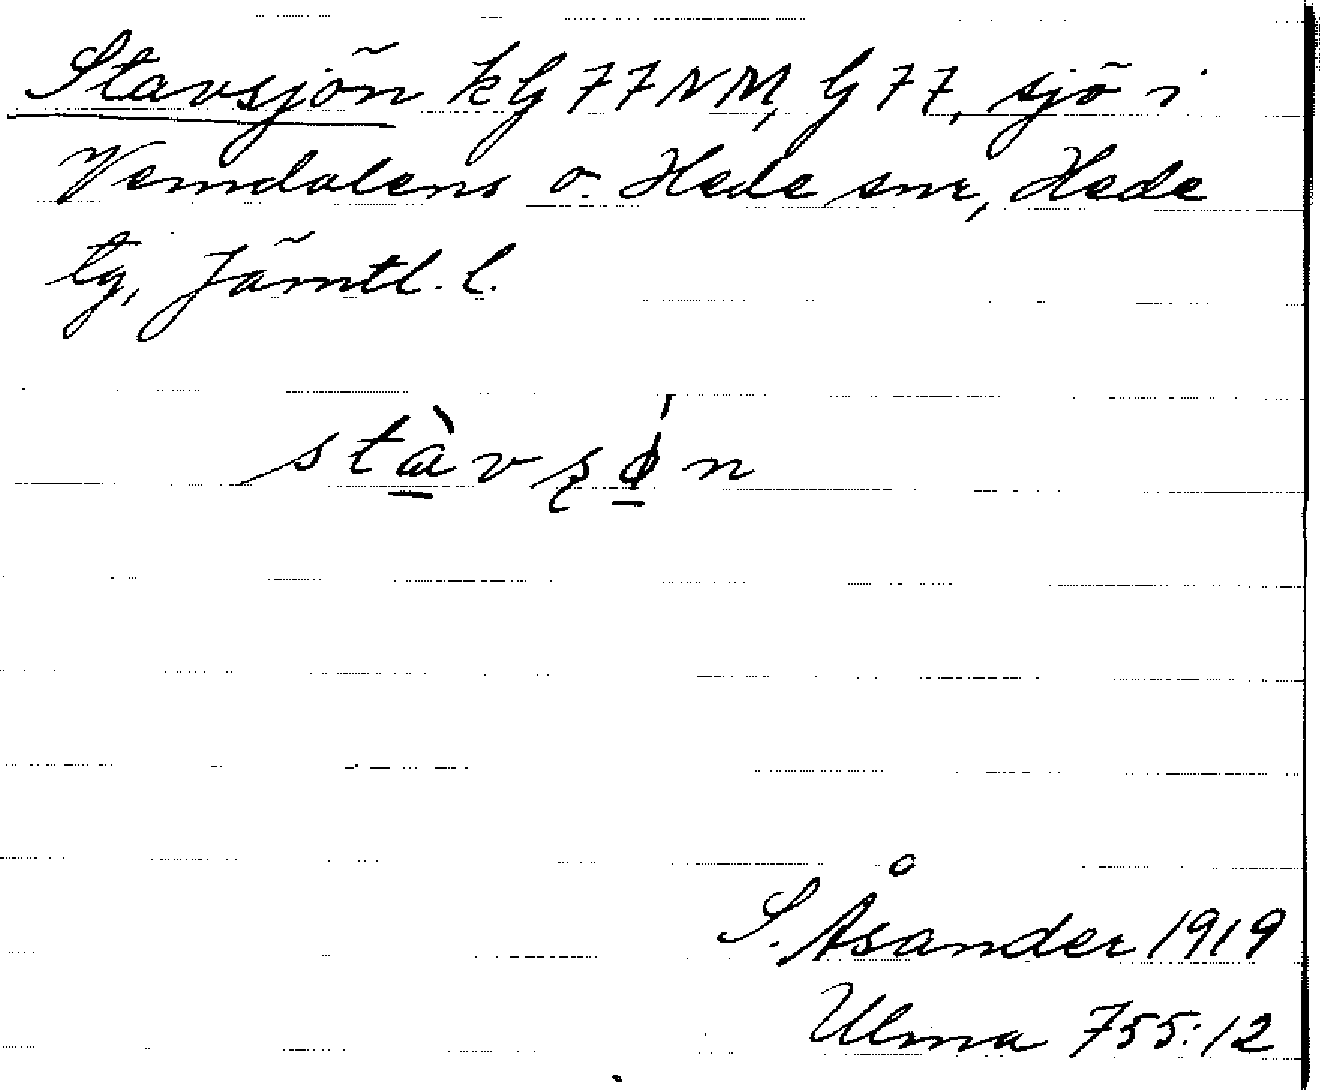 Stavsjön kG 77 NM, G 77, sjö i
Vemdalens o. Hede snr, Hede
tg, Jämtl. l.
stàvʂǿn
S. Åsander 1919
Ulma 755:12